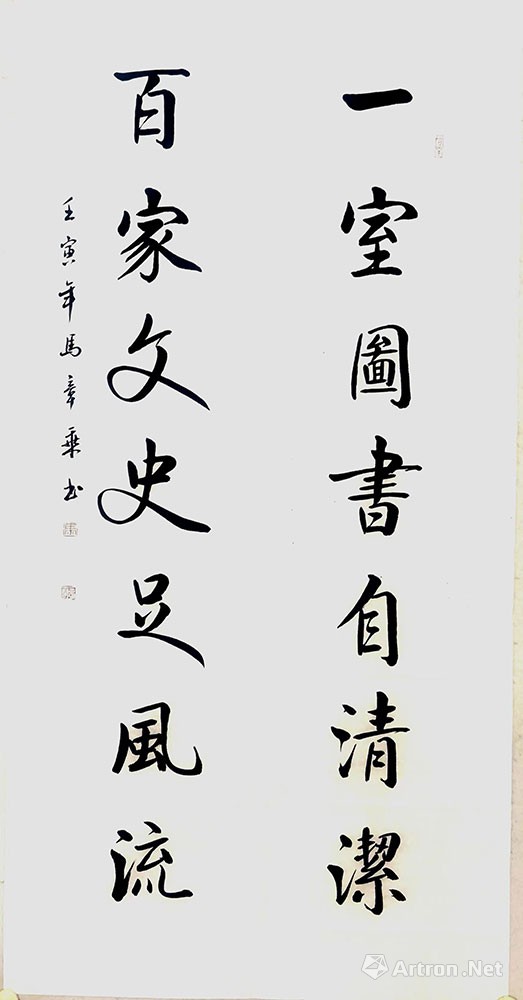 一室圖書自清潔
百家文史足風流
壬寅年馬章乘书
Artron.Net